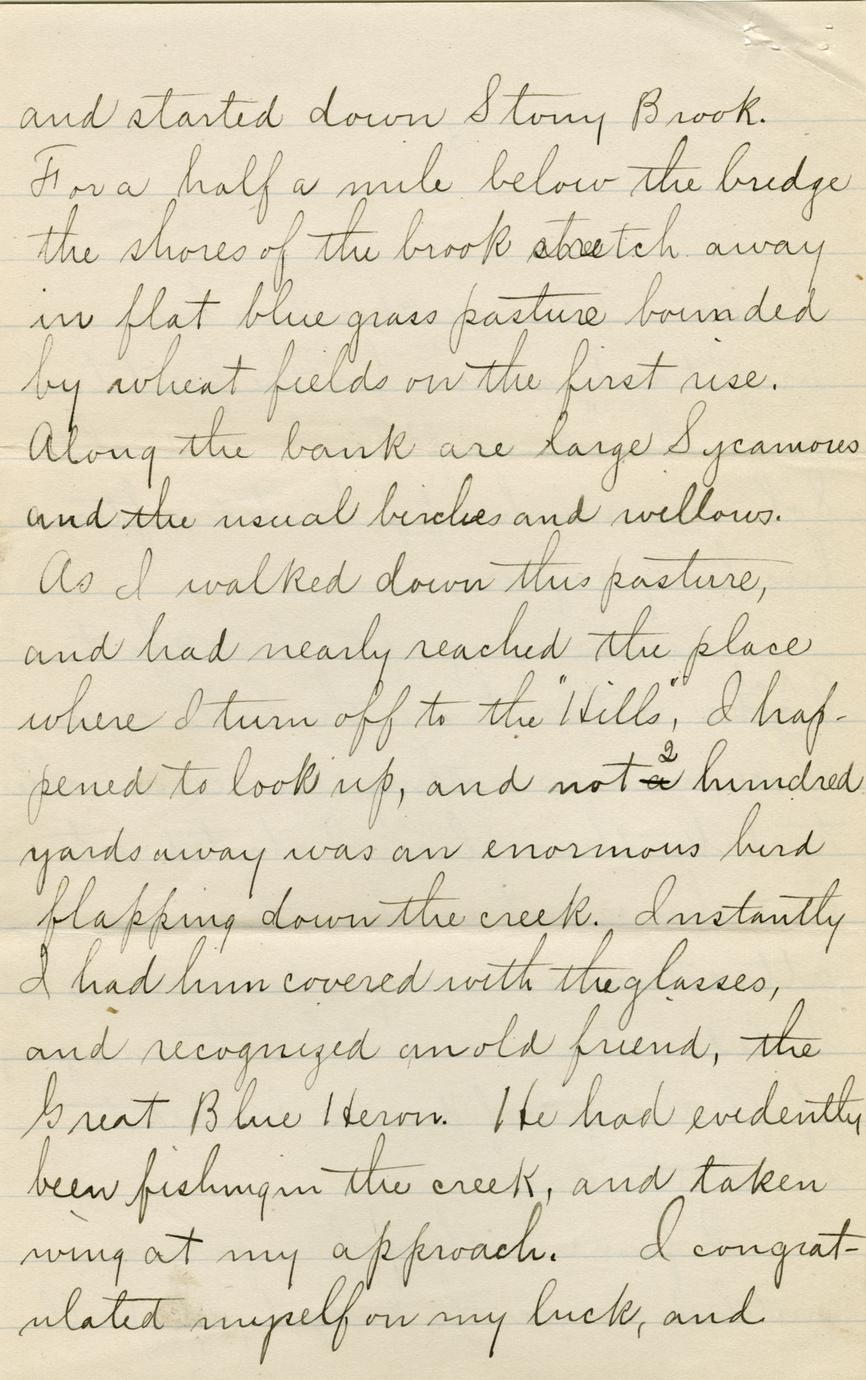 and started down Stony Brook.
For a half a mile below the bridge
the shores of the brook stretch away
in flat blue grass pasture bounded
by wheat fields on the first rise.
Along the bank are large Sycamores
and the usual birches and willows.
As I walked down this pasture,
and had nearly reached the place
where I turn off to the "Hills", I hap-
pened to look up, and not a 2 hundred
yards away was an enormous bird
flapping down the creek. Instantly
I had him covered with the glasses,
and recognized an old friend, the
Great Blue Heron. He had evidently
been fishing in the creek, and taken
wing at my approach. I congrat-
ulated myself on my luck, and